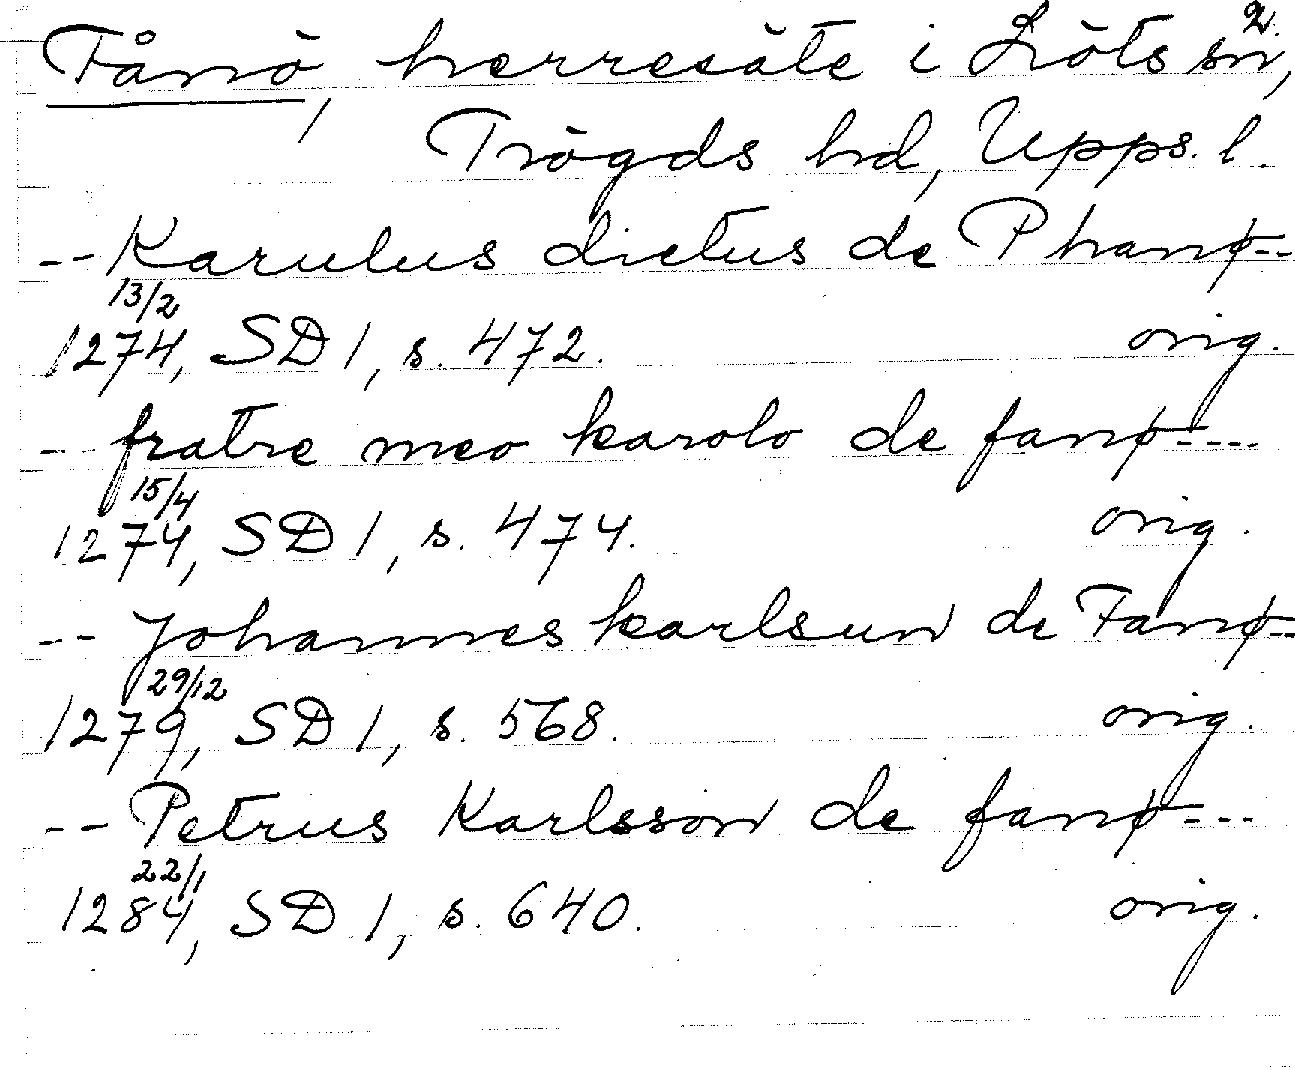 2.
Fånö, herresäte i Löts sn,
Trögds hd, Upps. l.
-- Karulus dictus de Phanø--
13/2
1274, SD 1, s. 472. orig.
-- fratre meo karolo de fanø----
15/4
1274, SD 1, s. 474. orig.
-- Johannes karlsun de Fanø--
29/12
1279, SD 1, s. 568. orig.
-- Petrus Karlsson de fanø---
22/1
1284, SD 1, s. 640. orig.